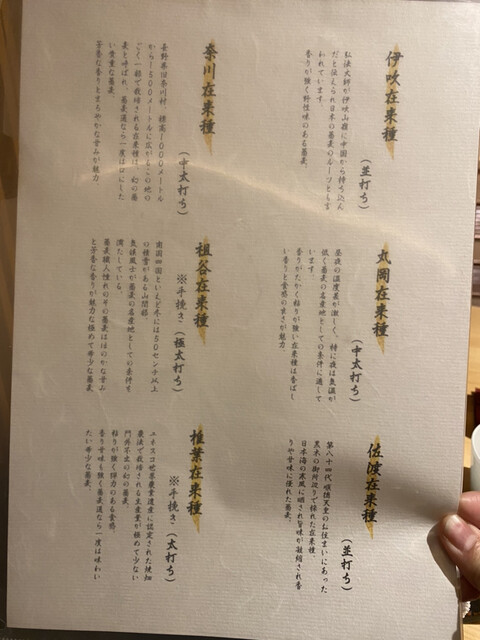 伊吹在来種
(並打ち)
弘法大師が伊吹山麓に中国から持ち込ん
だと伝えられ日本の蕎麦のルーツとも言
われています。
香りが強く野性味のある蕎麦。
奈川在来種
(中太打ち)
長野県旧奈川村、標高1000メートル
から1500メートルに広がるこの地の
ごく一部で栽培される在来種は、幻の蕎
麦と呼ばれ、蕎麦通なら一度は口にした
い貴重な蕎麦。
芳香な香りとまろやかな甘みが魅力
丸岡在来種
(中太打ち)
昼夜の温度差が激しく、特に夜は気温が
低く蕎麦の名産地としての条件に適して
います。
香りがたかく粘りが強い在来種は香ばし
い香りと食感の良さが魅力
祖谷在来種
※手挽き(極太打ち)
南国四国といえど冬には50センチ以上
の積雪がある山間部。
気候風土が蕎麦の名産地としての条件を
満たしている。
蕎麦職人憧れのその蕎麦はほのかな甘み
と芳香な香りが魅力な極めて希少な蕎麦
佐渡在来種
(並打ち)
第八十四代順徳天皇のお住まいにあった
黒木の御所辺りで採れた在来種、
日本海の寒風に晒され旨味が凝縮され香
りや甘味に優れた蕎麦。
椎葉在来種
※手挽き(太打ち)
ユネスコ世界農業遺産に認定された焼畑
農法で栽培される生産量が極めて少ない
門外不出の幻の蕎麦。
粘りが強く弾力のある食感
香り甘味も強く蕎麦通なら一度は味わい
たい希少な蕎麦。